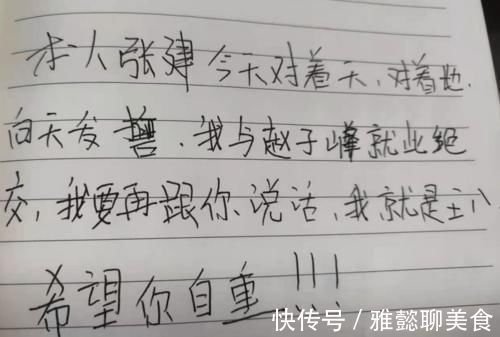 本人张建今天对着天、对着地.
向天发誓、我与赵子峰就此绝
交,我要再跟你说话,我就是王八
希望你自重!!!
快传号/雅懿聊美食